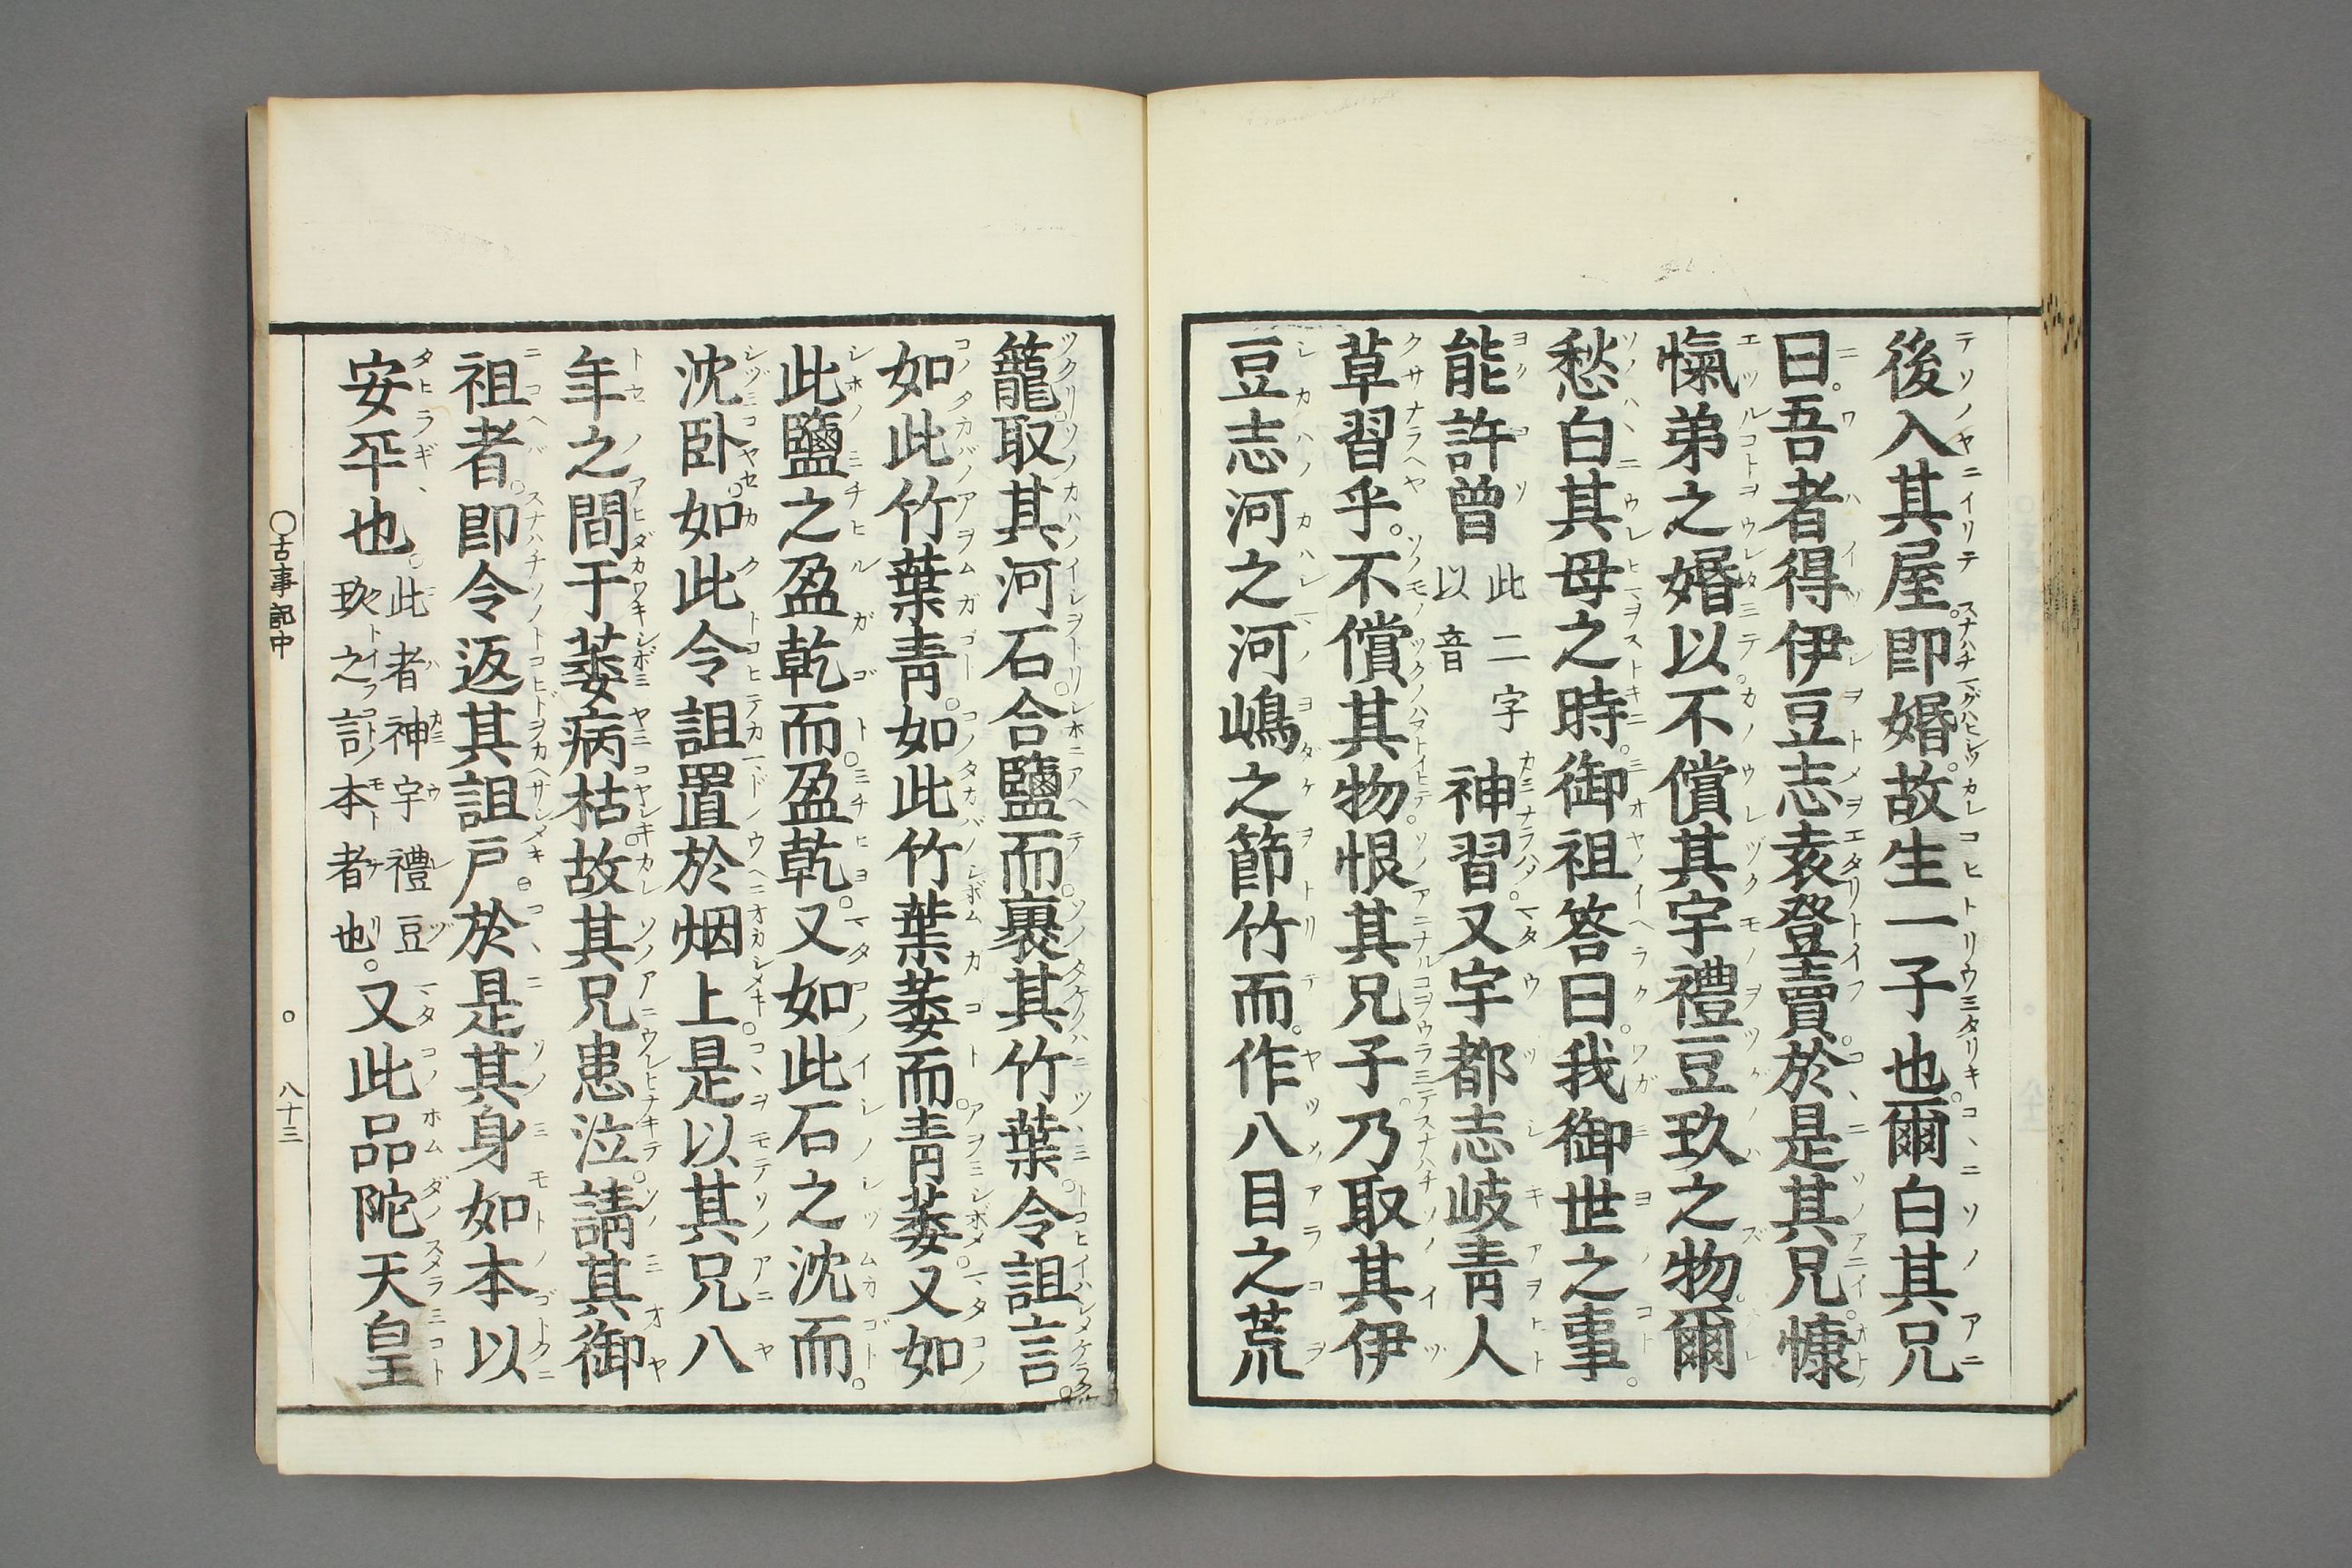 後入其屋。即婚。故生一子也。爾白其兄
曰。吾者得伊豆志袁登賣。於是其兄。慷
愾弟之婚以。不償其宇禮豆玖之物。爾
愁白其母之時。御祖答曰。我御世之事。
能許曾此二字以音神習。又宇都志岐青人
草習乎。不償其物。恨其兄子。乃取其伊
豆志河之河嶋之節竹而。作八目之荒
籠。取其河石。合鹽而。裹其竹葉。令詛言。
如此竹葉青。如此竹葉萎而。青萎。又如
此鹽之盈乾而。盈乾。又如此石之沈而。
沈臥。如此令詛置於烟上。是以其兄八
年之間于萎病枯。故其兄患泣。請其御
祖者。即令返其詛戸。於是其身如本以
安平也。此者神宇禮豆玖之言本者也。又此品陀天皇
○古事記中
○ 八十三